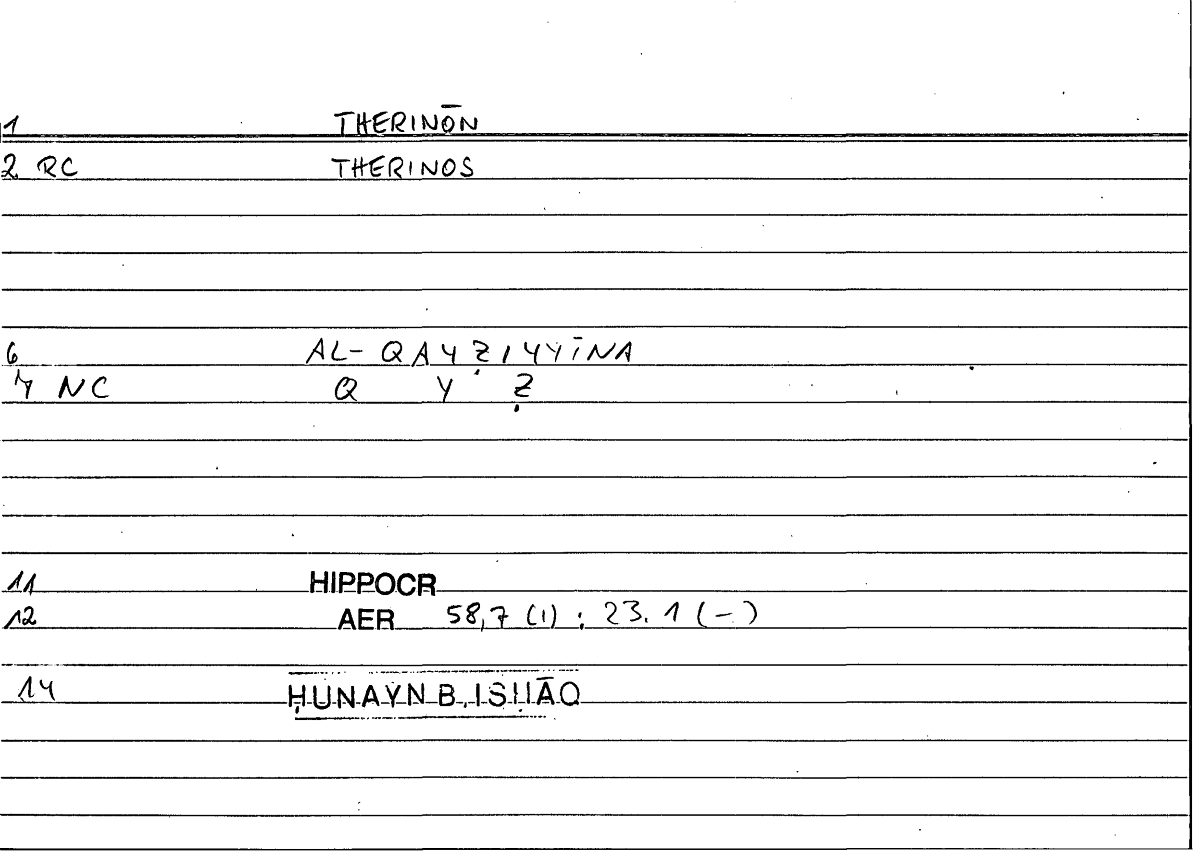 1 THERINŌN
2 RC THERINOS
6 AL-QAYẒIYYĪNA
7 NC Q Y Ẓ
11 HIPPOCR
12 AER 58,7 (1) ; 23. 1 (-)
14 ḤUNAYN B. ISḤĀQ